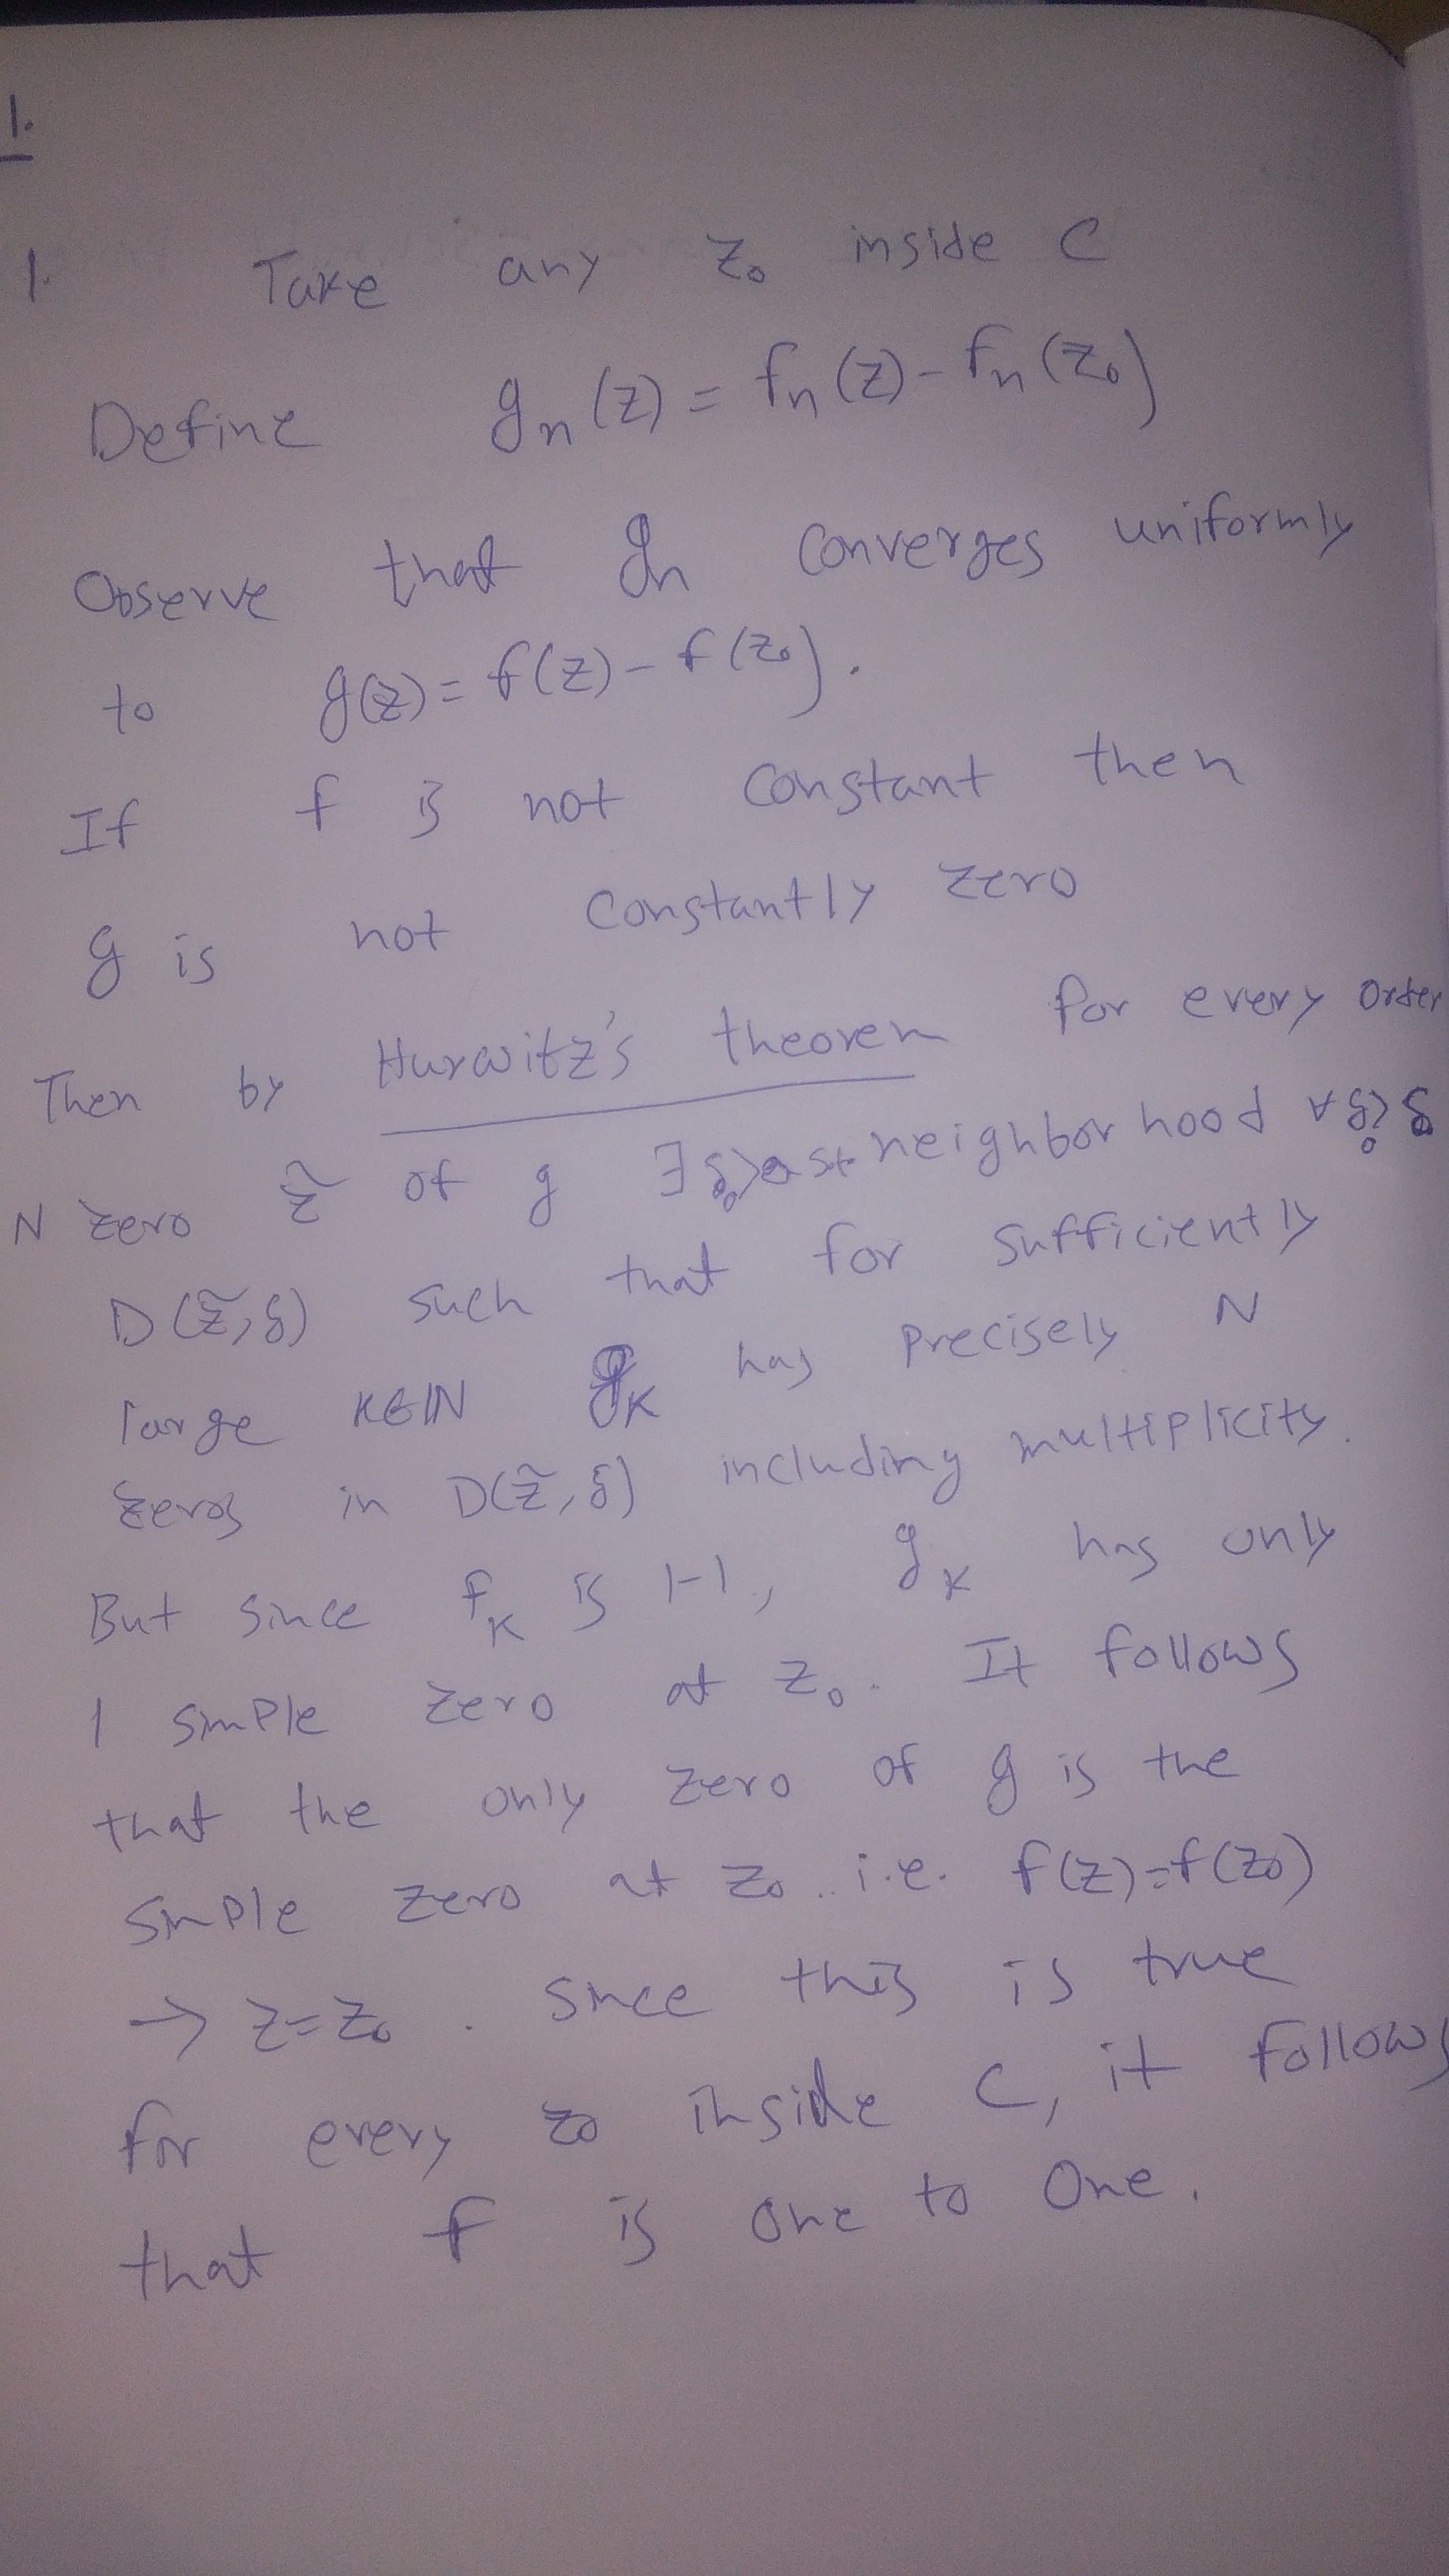 1.
1. Take any z₀ inside C
Define gₙ(z) = fₙ(z) - fₙ(z₀)
Observe that gₙ converges uniformly
to g(z) = f(z) - f(z₀).
If f is not constant then
g is not constantly zero
Then by Hurwitz's theorem for every order
N zero z̃ of g ∃ δ₀>0 st neighborhood ∀ δ₀>δ
D(z̃,δ) such that for sufficiently
large K∈ℕ g_K has precisely N
zeros in D(z̃,δ) including multiplicity.
But since f_K is 1-1, g_K has only
1 simple zero at z₀. It follows
that the only zero of g is the
simple zero at z₀. i.e. f(z)=f(z₀)
→ z=z₀. Since this is true
for every z₀ inside C, it follows
that f is one to one.